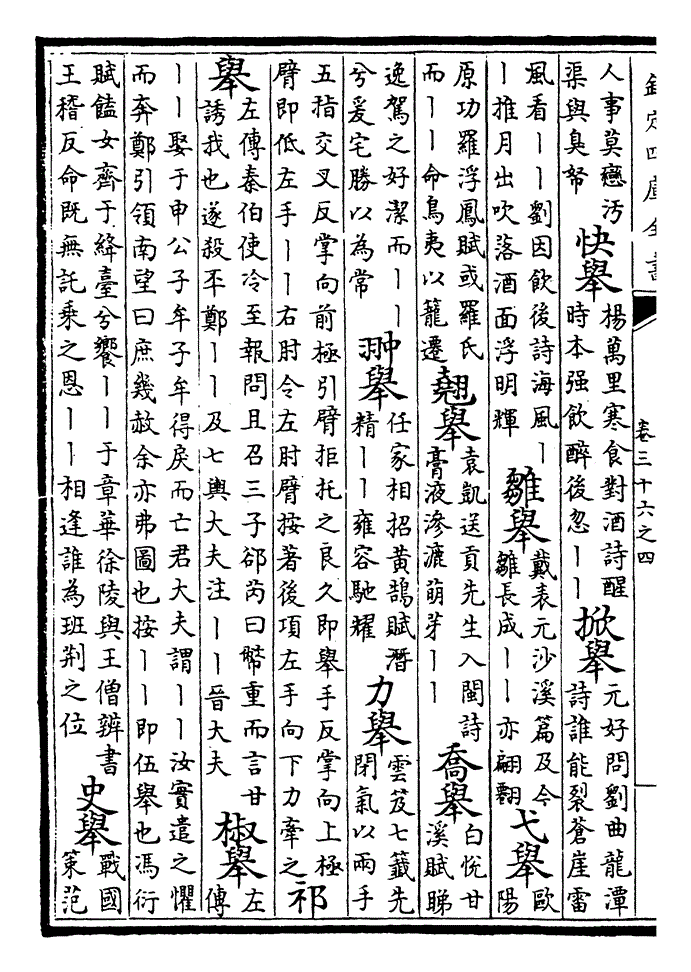 欽定四庫全書
卷三十六之四
人事莫戀汚
渠與臭帑
快舉
楊萬里寒食對酒詩醒
時本强飲醉後忽丨丨
掀舉
元好問劉曲龍潭
詩誰能裂蒼崖雷
風看丨丨劉因飲後詩海風丨
丨推月出吹落酒面浮明輝
雛舉
戴表元沙溪篇及今
雛長成丨丨亦翩翻
弋舉
歐
陽
原功羅浮鳳賦或羅氏
而丨丨命鳥夷以籠遷
翹舉
袁凱送貢先生入閩詩
膏液滲漉萌芽丨丨
喬舉
白悅甘
溪賦睇
逸駕之好潔而丨丨
兮爰宅勝以為常
翀舉
任家相招黄鵠賦潛
精丨丨雍容馳耀
力舉
雲笈七籤先
閉氣以兩手
五指交叉反掌向前極引臂拒托之良久即舉手反掌向上極
臂即低左手丨丨右肘令左肘臂按著後項左手向下力牽之
祁
舉
左傳秦伯使冷至報問且召三子郤芮曰幣重而言甘
誘我也遂殺丕鄭丨丨及七輿大夫注丨丨晉大夫
椒舉
左
傳
丨丨娶于申公子牟子牟得戾而亡君大夫謂丨丨汝實遣之懼
而奔鄭引領南望曰庶幾赦余亦弗圖也按丨丨即伍舉也馮衍
賦饁女齊于絳臺兮饗丨丨于章華徐陵與王僧辨書
王稽反命既無託乘之恩丨丨相逢誰為班荆之位
史舉
戰國
策范